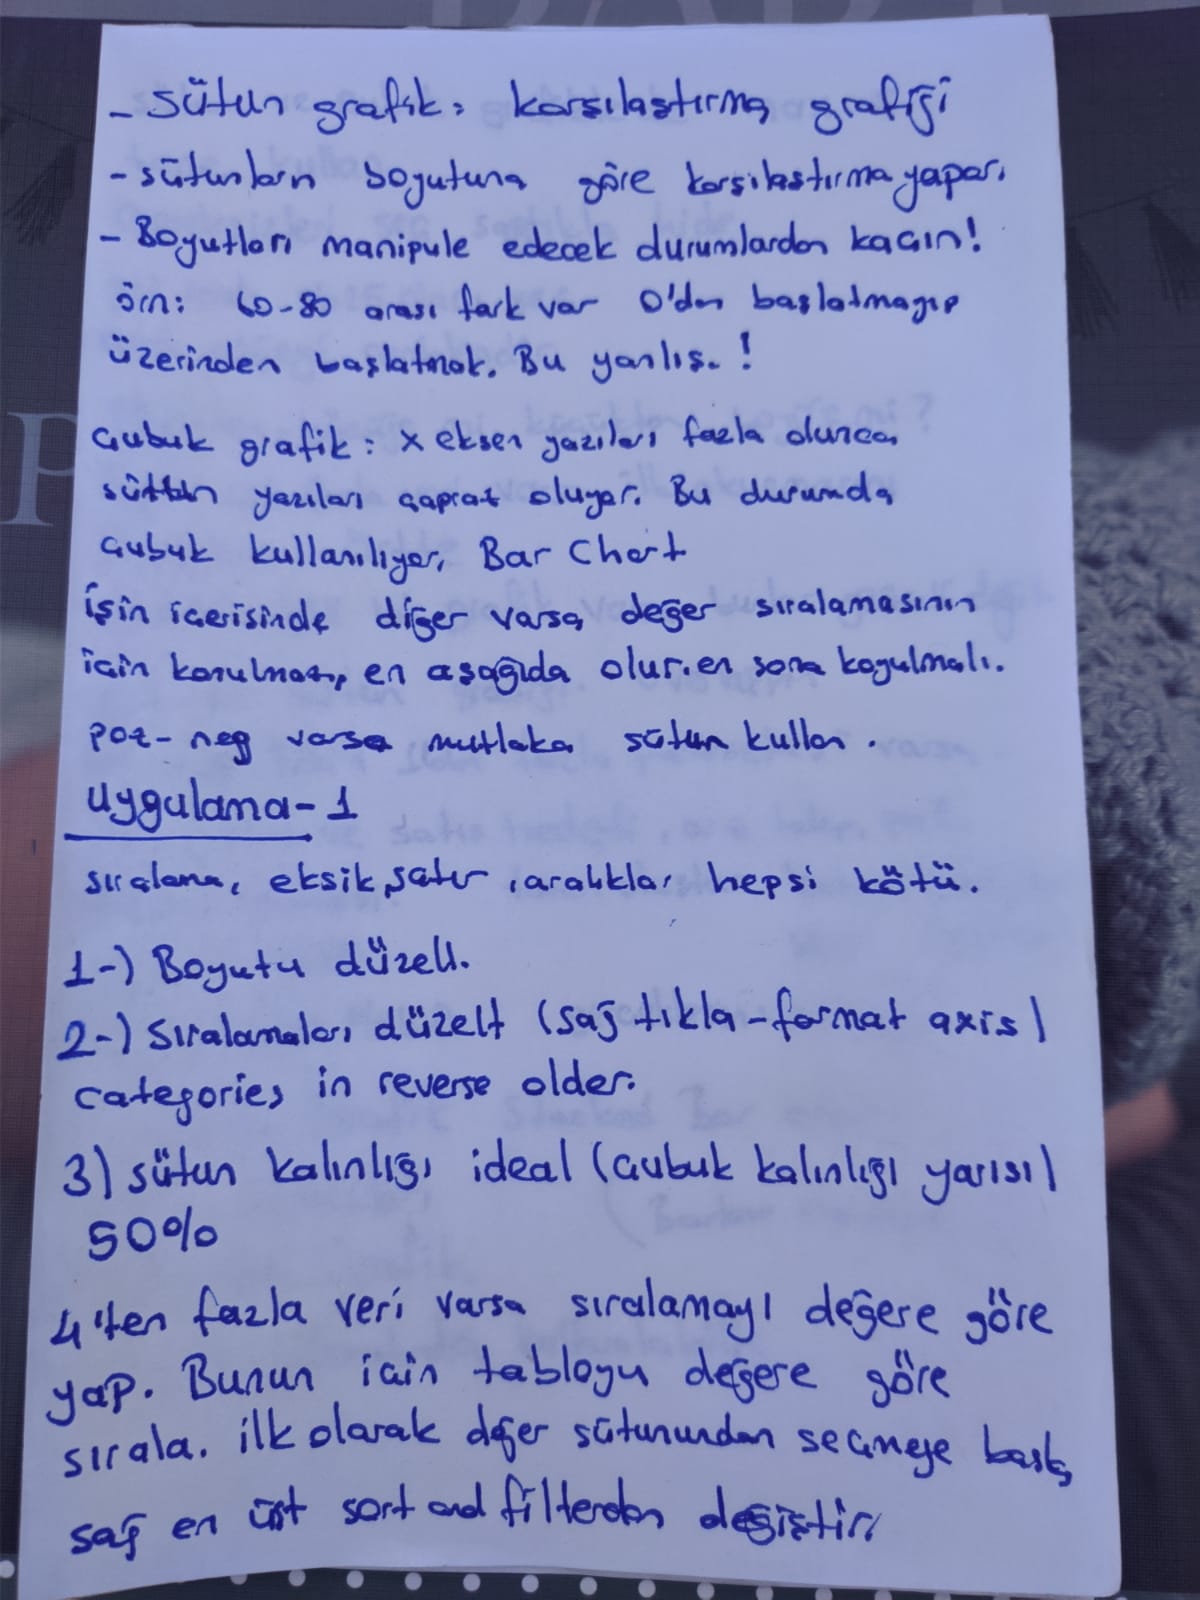 - sütun grafik: karşılaştırma grafiği
- sütunların boyutuna göre karşılaştırma yapar.
- Boyutları manipule edecek durumlardan kaçın!
örn: 60-80 arası fark var 0'dan başlatmayıp
üzerinden başlatmak. Bu yanlış. !
Çubuk grafik: x eksen yazıları fazla olunca
sütun yazıları çapraz oluyor. Bu durumda
çubuk kullanılıyor, Bar Chart
İşin içerisinde diğer varsa değer sıralamasının
için konulmaz, en aşağıda olur. en sona koyulmalı.
poz-neg varsa mutlaka sütun kullan.
Uygulama-1
sıralama, eksik, satır, aralıklar hepsi kötü.
1-) Boyutu düzelt.
2-) Sıralamaları düzelt (sağ tıkla-format axis)
categories in reverse older.
3) sütun kalınlığı ideal (çubuk kalınlığı yarısı)
50%
4'ten fazla veri varsa sıralamayı değere göre
yap. Bunun için tabloyu değere göre
sırala. ilk olarak değer sütunundan seçmeye başla,
sağ en üst sort and filterdan değiştir.
P